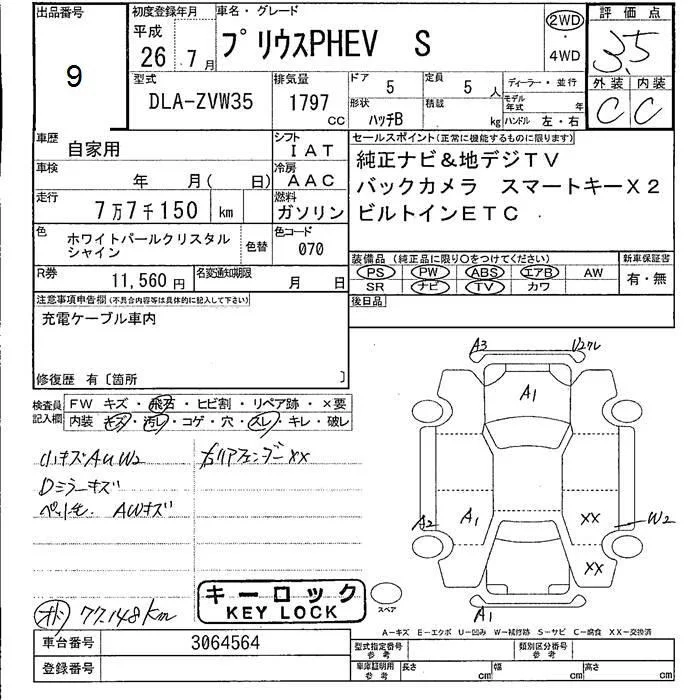 出品番号
9
初度登録年月
平成
26 年 7 月
車名・グレード
プリウスPHEV S
2WD
・
4WD
評価点
3.5
外装 内装
C C
型式
DLA-ZVW35
排気量
1797 cc
ドア 5
定員 5 人
形状 ハッチB
積載 kg
ディーラー・並行
モデル年式 年
ハンドル 左・右
車歴 自家用
シフト IAT
車検 年 月( 日)
冷房 AAC
走行 7万7千150 km
燃料 ガソリン
色 ホワイトパールクリスタル
シャイン
色替
色コード 070
R券 11,560 円
名変通知期限 月 日
セールスポイント(正常に機能するものに限ります)
純正ナビ&地デジTV
バックカメラ スマートキーX2
ビルトインETC
装備品 (純正品に限り○をつけてください)
新車保証書
PS PW ABS エアB AW
SR ナビ TV カワ
有・無
後日品
注意事項申告欄(不具合内容等は具体的に記入して下さい)
充電ケーブル車内
修復歴 有〔箇所 〕
検査員記入欄
FW キズ・飛石・ヒビ割・リペア跡・×要
内装 キズ・汚レ・コゲ・穴・スレ・キレ・破レ
小キズAUW2
右リアフェンダーXX
Dミラーキズ
ペット毛 AWキズ
オド 77,148Km
キーロック
KEY LOCK
A3
U2ワレ
A1
A2
A1
XX
W2
XX
A1
スペア
A-キズ E-エクボ U-凹み W-補修跡 S-サビ C-腐食 XX-交換済
車台番号 3064564
登録番号
型式指定番号
参考
類別区分番号
参考
車庫証明用
参考
長さ cm
幅 cm
高さ cm